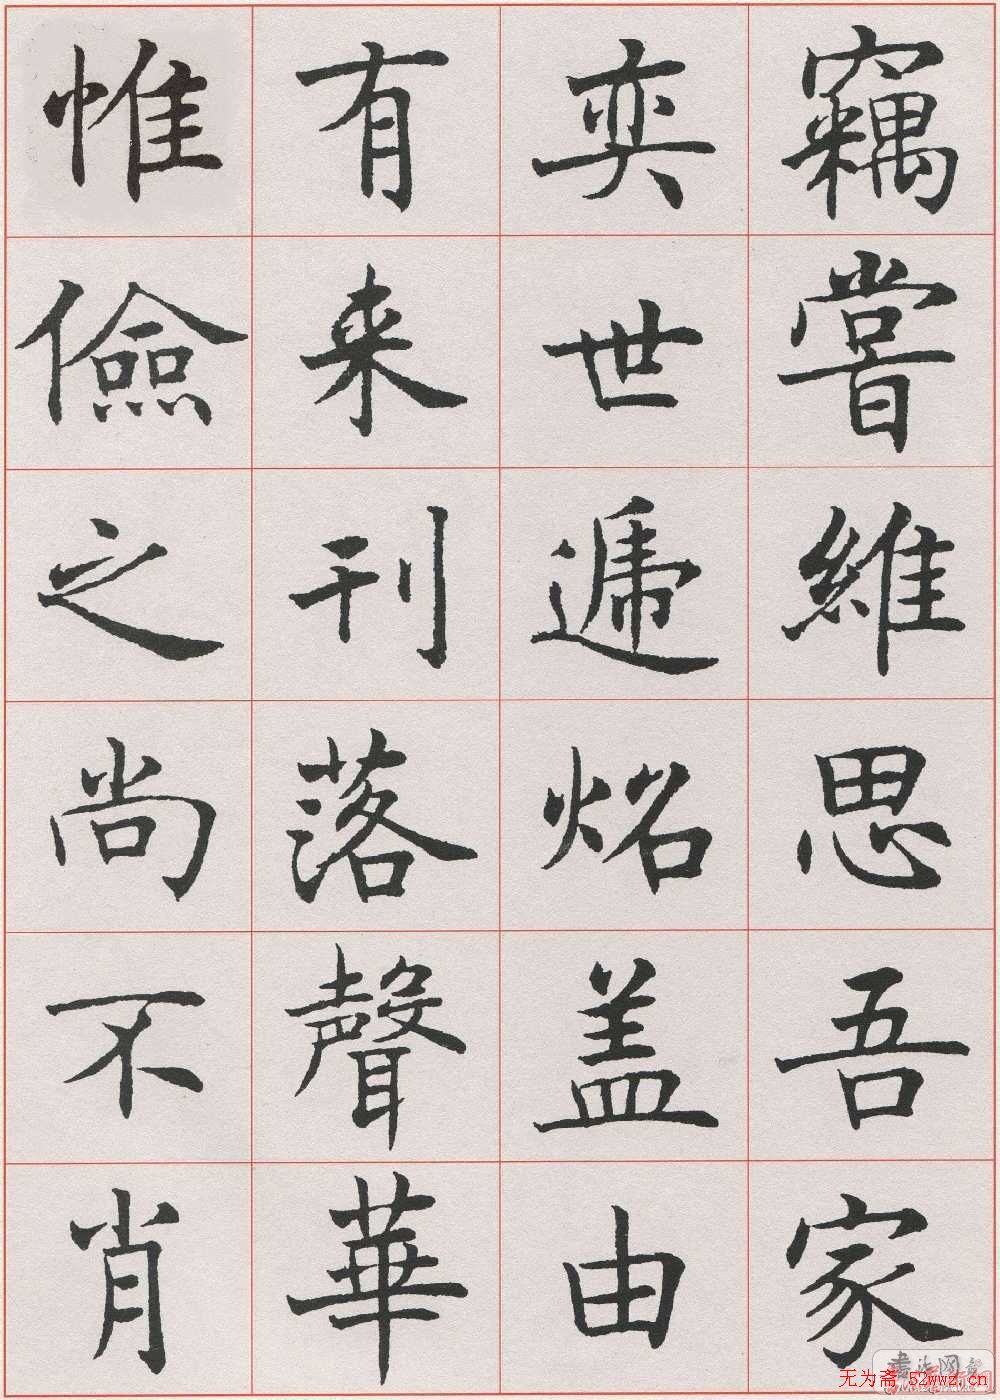 竊嘗維思吾家
奕世遞炤盖由
有来刊落聲華
惟儉之尚不肖
无为斋 52wwz.cn